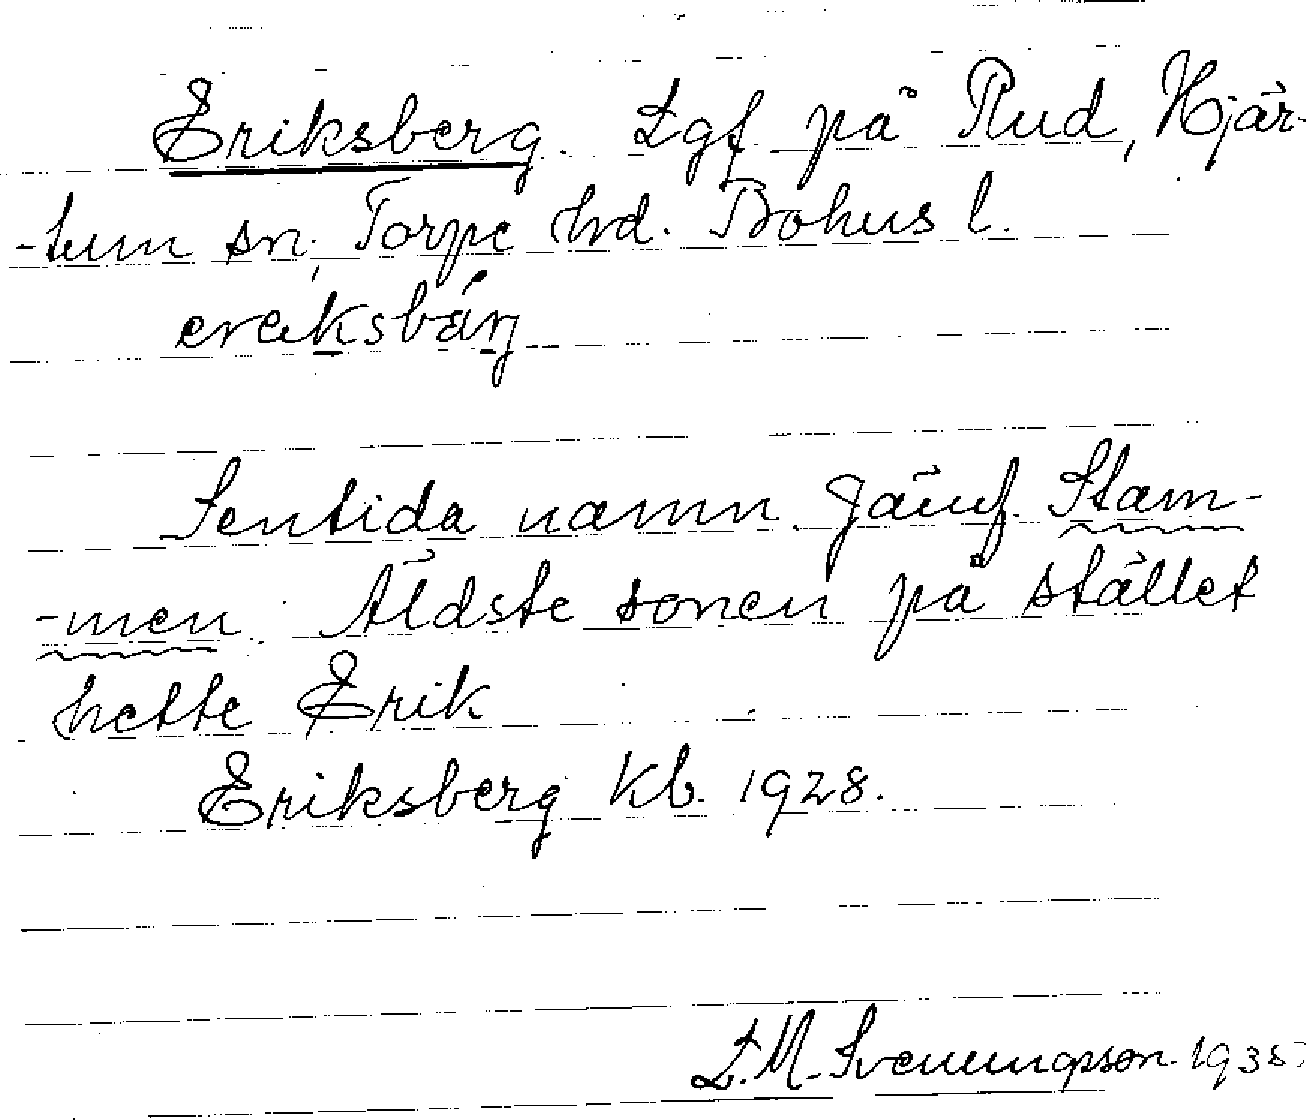 Eriksberg. Lgf på Rud, Hjär-
-tum sn, Torpe hd. Bohus l.
ereksbärŋ
Sentida namn. Jämf. Stam-
-men. Äldste sonen på stället
hette Erik
Eriksberg Kb. 1928.
L.M. Svenungsson. 1935